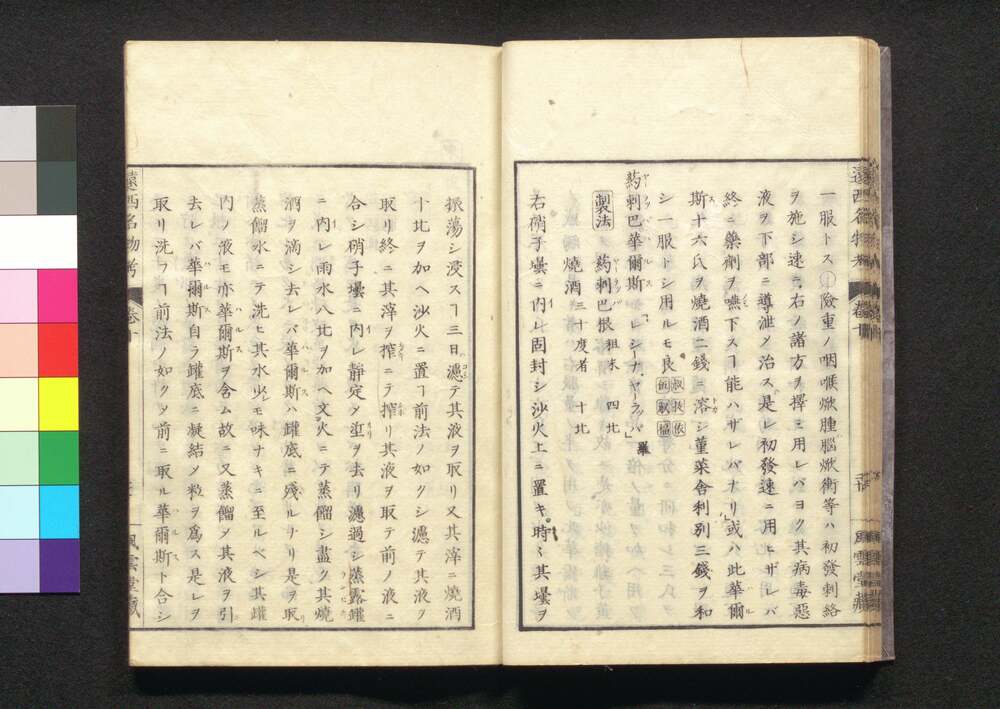 一服トス○險重ノ咽喉焮腫腦焮衝等ハ初發刺絡
ヲ施シ速ニ右ノ諸方ヲ擇ミ用レバヨク其病毒惡
液ヲ下部ニ導泄メ治ス是レ初發速ニ用ヒザレバ
終ニ藥劑ヲ嚥下スヿ能ハザレバナリ或ハ此華爾
斯十六氏ヲ燒酒二錢ニ溶シ菫菜舍利別三錢ヲ和
シ一服トシ用ルモ良
葯剌巴華爾斯 「レシーナ、ヤーラッパ」羅
製法 葯剌巴根粗末 四比
燒酒三十度者 十比
右硝子壜ニ内レ固封シ沙火上ニ置キ時々其壜ヲ
遠西名物考 卷十 風雲堂藏
振蕩シ浸スヿ三日濾テ其液ヲ取リ又其滓ニ燒酒
十比ヲ加ヘ沙火ニ置ヿ前法ノ如クシ濾テ其液ヲ
取リ終ニ其滓ヲ搾ニテ搾リ其液ヲ取テ前ノ液ニ
合シ硝子壜ニ内レ靜定メ垽ヲ去リ濾過シ蒸露罐
ニ内レ雨水八比ヲ加ヘ文火ニテ蒸餾シ盡ク其燒
酒ヲ滴シ去レバ華爾斯ハ罐底ニ殘ルナリ是ヲ取リ
蒸餾水ニテ洗ヒ其水少モ味ナキニ至ルベシ其罐
内ノ液モ亦華爾斯ヲ含ム故ニ又蒸餾メ其液ヲ引
去レバ華爾斯自ラ罐底ニ凝結メ粒ヲ爲ス是レヲ
取リ洗フヿ前法ノ如クメ前ニ取ル華爾斯ト合シ
遠西名物考 卷十 風雲堂藏